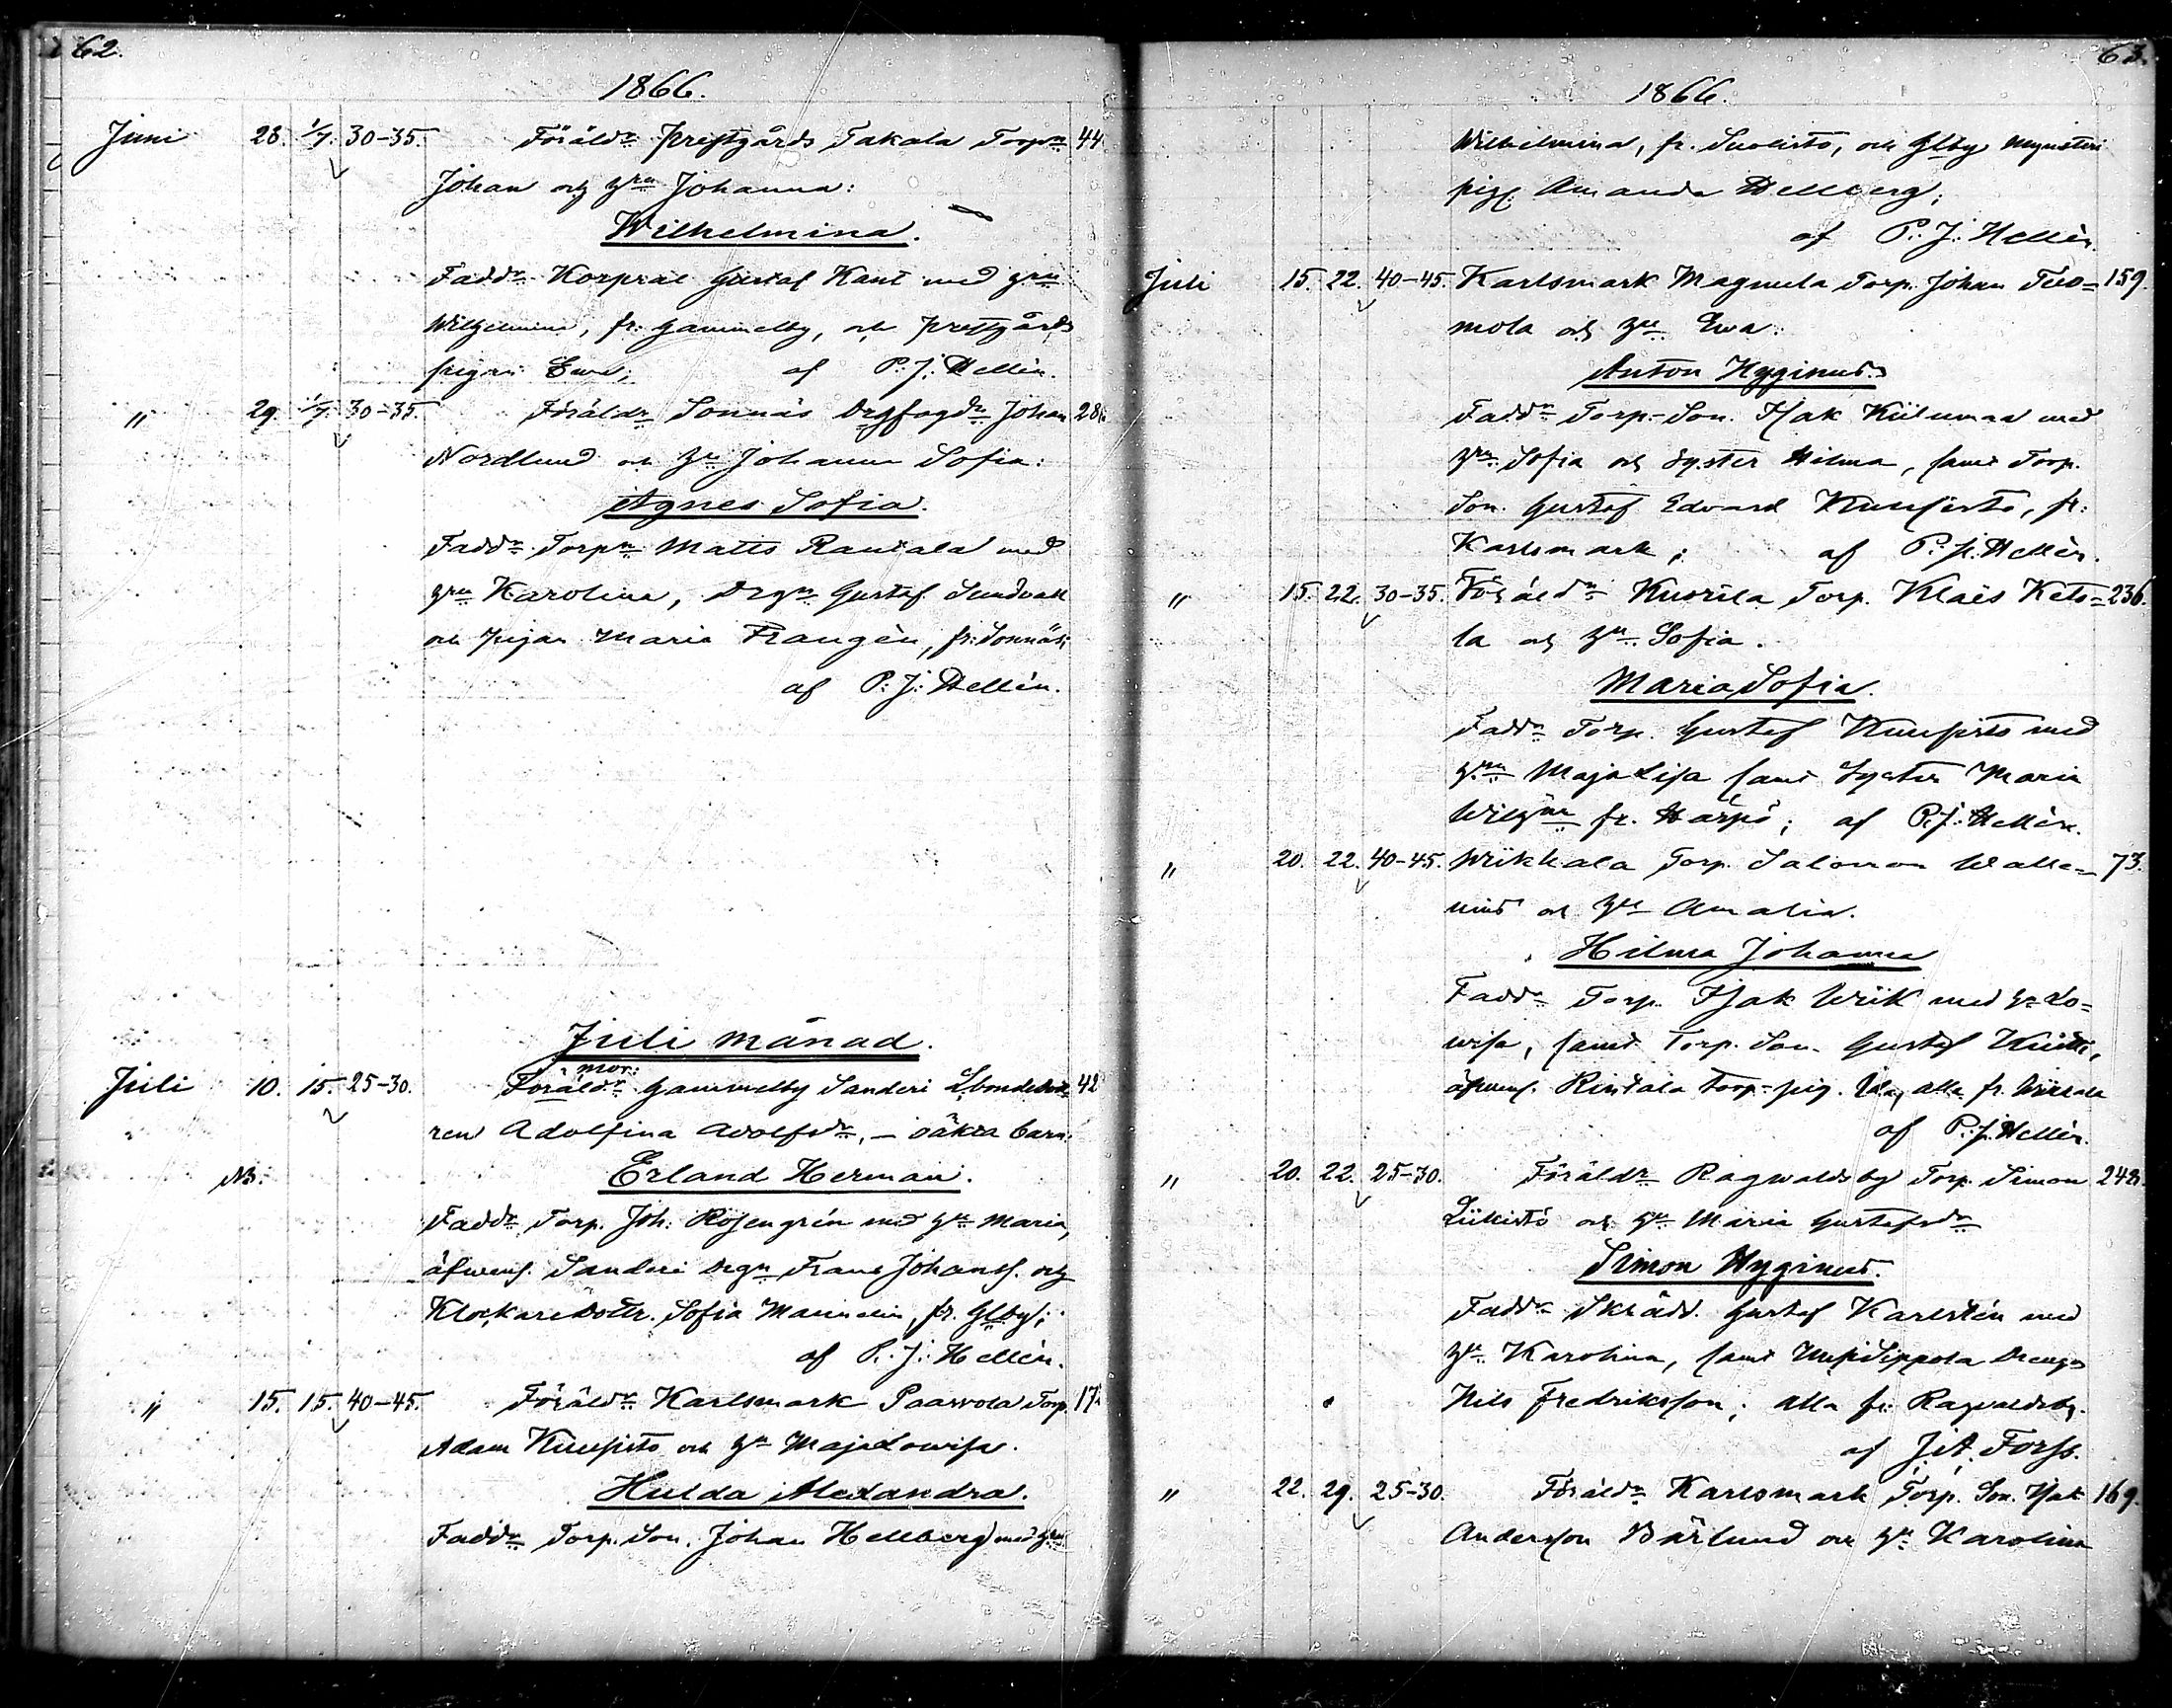 62.
1866.
Juni 28. 1/7. 30-35. Föräldr Prestgårds Takala Torpn 44
Johan och hru Johanna:
Wilhelmina.
Faddr Korpral Gustaf Kant med hru
Wilhelmina, fr. Gammelby, och prestgårds
pigan Ewa; af P. J. Hellén.
" 29. 1/7. 30-35. Föräldr Sonnäs Johan 28
Nordlund och hu Johanna Sofia:
Agnes Sofia.
Faddr Torpn Matts Rantala med
hru Karolina, Drgn Gustaf Sundvall
och pigan Maria Frangèn, fr. Sonnäs;
af P: J: Hellén.
Juli månad.
mor:
Juli 10. 15. 25-30. Föräldr Gammelby Sanderi 42
ren Adolfina Adolfsdr, – oäkta barn:
NB: Erland Herman.
Faddr Torp. Joh: Rosengrén med hu Maria,
äfwens. Sanderi drgn Frans Johanss. och
Klockaredottr. Sofia Mannelin, fr. Glby;
af P. J: Hellén.
" 15. 15. 40-45. Föräldr Karlsmark Paavola Torp. 17
Adam Kuusisto och hu Maja Lowisa.
Hulda Alexandra.
Faddr Torp. Son. Johan Hellberg med hru
63.
1866.
Wilhelmina, fr. Suolisto, och Glby
pig. Amanda Hellberg;
af P: J: Hellén.
Juli 15. 22. 40-45. Karlsmark Magnula Torp. Johan Tuo= 159.
mola och hu Ewa:
Anton Hyginus.
Faddr Torp.-Son. Isak Kiilunma med
hru Sofia och Syster Hilma, samt Torp.
Son. Gustaf Edvard Kuusisto, fr:
Karlsmark; af P: J: Hellén.
" 15. 22. 30-35. Föräldr Kuorila Torp. Klaës Keto= 236.
la och hu Sofia.
Maria Sofia.
Faddr Torp. Gustaf Kuusisto med
hru Maja Lisa samt Syster Maria
Wilhna fr. Härpö; af P. J. Hellén.
" 20. 22. 40-45. Wiikkala Torp. Salomon Walle= 73.
nius och hu Amalia.
Hilma Johanna
Faddr Torp. Isak Wiik med hu Lo=
wisa, samt Torp. Son. Gustaf
äfwens. Rintala Torp-pig. Ida, alla fr. Wiikala
af P: J. Hellén.
" 20. 22. 25-30. Föräldr Ragwaldsby Torp. Simon 242.
Liikistö och hu Maria Gustafsdr
Simon Hyginus.
Faddr Skrädd. Gustaf Karlstén med
hu Karolina, samt Uusisippola Drengn
Nils Fredriksson; alla fr: Ragvaldsby.
af J. A. Forss.
" 22. 29. 25-30. Föräldr Karlsmark Torp. Son. Isak 169.
Andersson Bärlund och hu Karolina